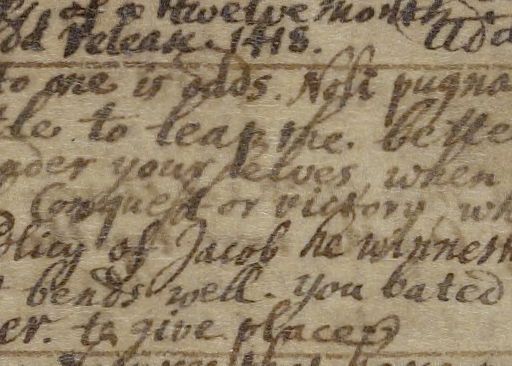 of a twelve month
Release. 1418. Ad
to one is odds. Noli pugna
tle to leap the. bette
nder your selves, when
Conquest or victory wh
olicy of Jacob he winneth
bends well. you bated
er. to give place